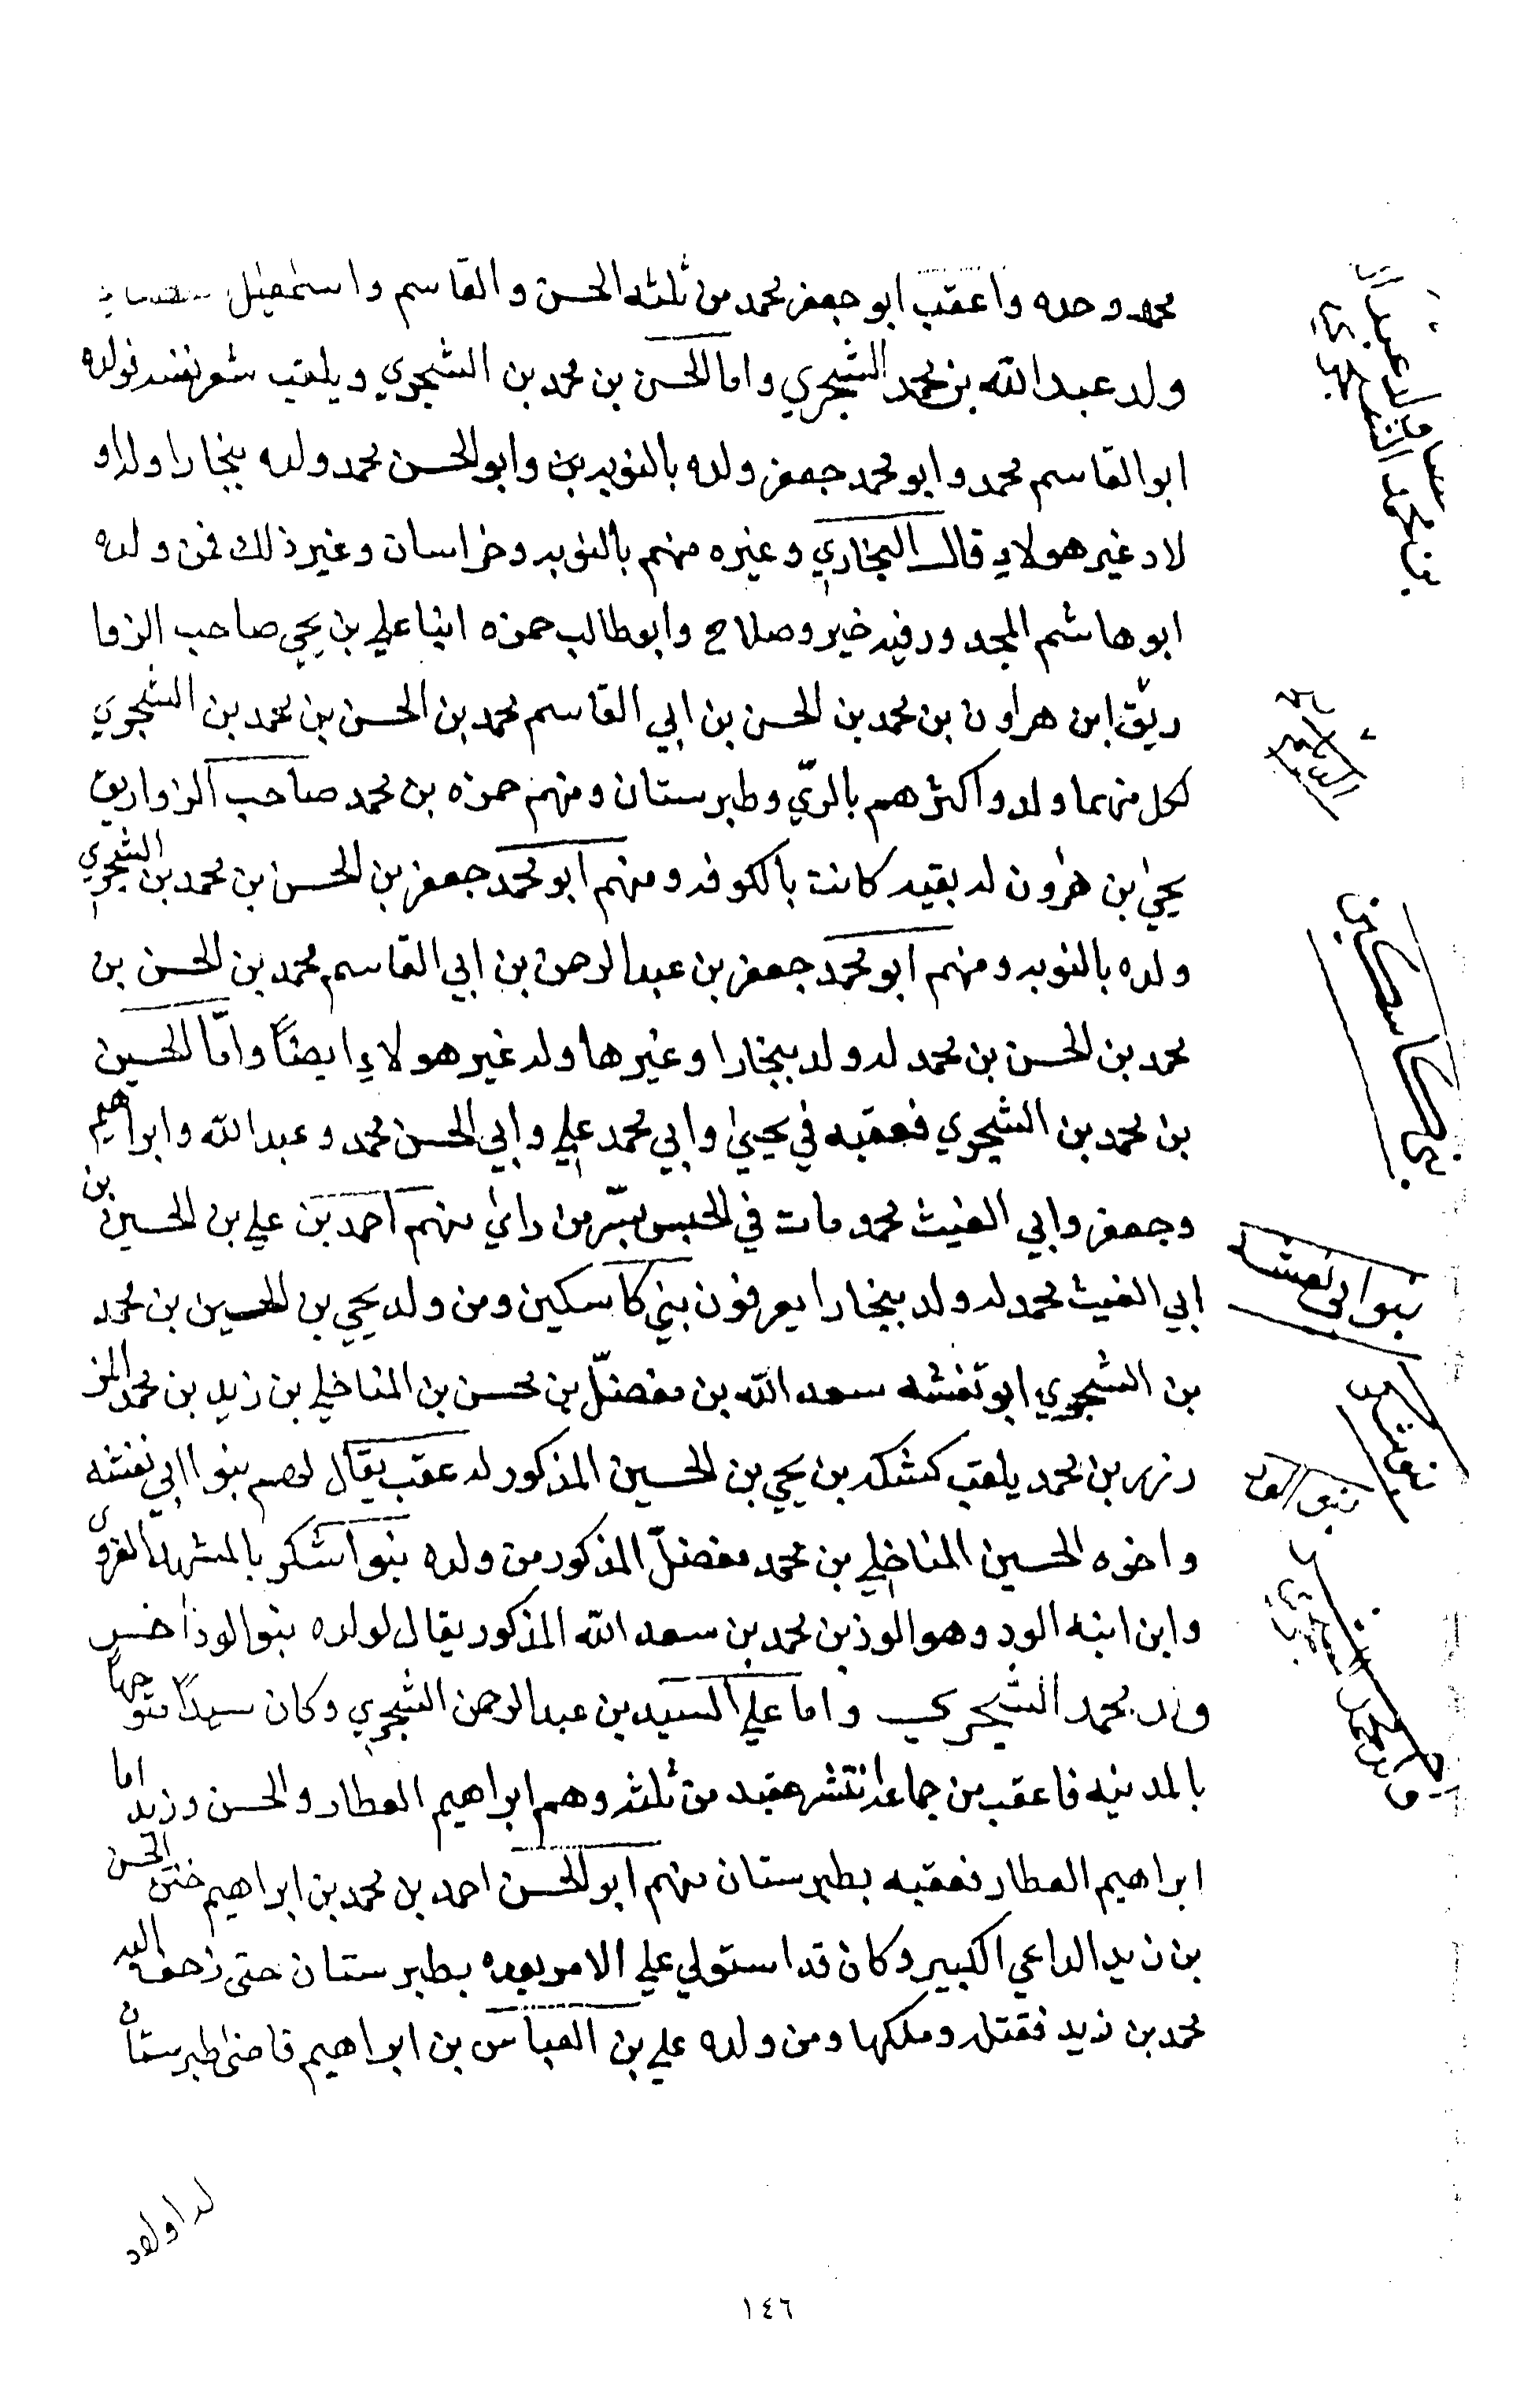 محمد وحده واعقب ابو جعفر محمد من ثلثه الحسن والقاسم واسمعيل
ولد عبد الله بن محمد الشجري واما الحسن بن محمد بن الشجري ويلقب شعر نفسه فولده
ابو القاسم محمد وابو محمد جعفر ولده بالنوبه بن وابو الحسن محمد ولده ببخارا وله او
لاد غير هولاء قال البخاري وغيره منهم بالنوبه وخراسان وغير ذلك فمن ولده
ابو هاشم المجدور فيه خير وصلاح وابو طالب حمزه ابنا علي بن يحي صاحب الزوا
ريق ابن هراون بن محمد بن الحسن بن ابي القاسم محمد بن الحسن بن محمد بن الشجري
لكل منهما ولد واكثرهم بالريّ وطبرستان ومنهم حمزه بن محمد صاحب الزواريق
يحيٰ بن هٰرون له بقيه كانت بالكوفه ومنهم ابو محمد جعفر بن الحسن بن محمد بن الشجري
ولده بالنوبه ومنهم ابو محمد جعفر بن عبد الرحمن بن ابي القاسم محمد بن الحسن بن
محمد بن الحسن بن محمد له ولد ببخارا وغيرها وله غير هولاءِ ايضاً وامّا الحسين
بن محمد بن الشجري فعقبه في يحيىٰ وابي محمد علي وابي الحسن محمد وعبد الله وابراهيم
وجعفر وابي الغيث محمد ومات في الحبس بسّر من رائ منهم احمد بن علي بن الحسين بن
ابي الغيث محمد له ولد ببخارا يعرفون ببني كاسكين ومن ولد يحيي بن الحسين بن محمد
بن الشجري ابو تغشه سعد الله بن مفضّل بن محسن بن المناخلي بن زيد بن محمد المز
رزير بن محمد يلقب كشكه بن يحي بن الحسين المذكور له عقب يقال لهم بنوا ابي تغشه
واخوه الحسين المناخلي بن محمد مفضّل المذكور من ولده بنوا شكر بالمشهد الغروي
وابن ابنه الود وهو الود بن محمد بن سعد الله المذكور يقال لولده بنو الود اخر
ولد محمد الشجري واما علي السيد بن عبد الرحمن الشجري وكان سيداً متوجهاً
بالمدينه فاعقب من جماعه انتشر عقبه من ثلثه وهم ابراهيم العطار والحسن وزيد اما
ابراهيم العطار فعقبه بطبرستان منهم ابو الحسن احمد بن محمد بن ابراهيم ختن الحسن
بن زيد الداعي الكبير وكان قد استولي علي الامر بعده بطبرستان حتى زحف اليه
محمد بن زيد فقتله وملكها ومن ولده علي بن العباس بن ابراهيم قاضى طبرستان
له اولاد
بني كاسكين
بنو ابي تغشه
بنو شكر
بنو الود
١٤٦